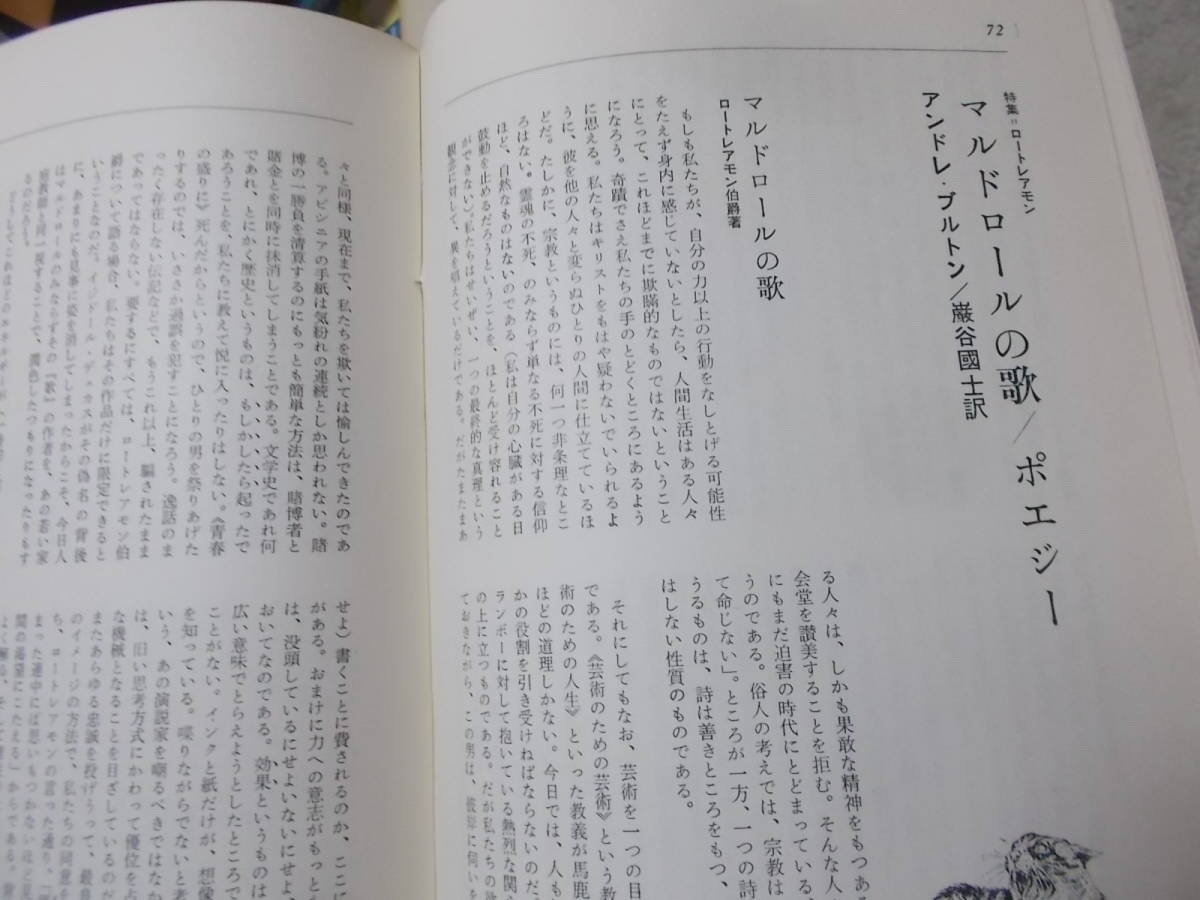 72
特集＝ロートレアモン
マルドロールの歌／ポエジー
アンドレ・ブルトン／巖谷國士訳
マルドロールの歌
ロートレアモン伯爵著
もしも私たちが、自分の力以上の行動をなしとげる可能性
をたえず身内に感じていないとしたら、人間生活はある人々
にとって、これほどまでに欺瞞的なものではないということ
になろう。奇蹟でさえ私たちの手のとどくところにあるよう
に思える。私たちはキリストをもはや疑わないでいられるよ
うに、彼を他の人々と変らぬひとりの人間に仕立てているほ
どだ。たしかに、宗教というものには、何一つ非条理なとこ
ろはない。霊魂の不死、のみならず単なる不死に対する信仰
ほど、自然なものはないのである（私は自分の心臓がある日
鼓動を止めるだろうということを、ほとんど受け容れること
ができない）。私たちはせいぜい、一つの最終的な真理という
観念に対して、異を唱えているだけである。だがたまたまあ
る人々は、しかも果敢な精神をもつある
会堂を讃美することを拒む。そんな人
にもまだ迫害の時代にとどまっている
うのである。俗人の考えでは、宗教は
て命じない」。ところが一方、一つの詩
うるものは、詩は善きところをもつ、
はしない性質のものである。
それにしてもなお、芸術を一つの目
である。《芸術のための芸術》という教
術のための人生》といった教義が馬鹿
ほどの道理しかない。今日では、人も
かの役割を引き受けねばならないのだ
ランボーに対して抱いている熱烈な関
の上に立つものである。だが私たちの
ておきながら、この男は、彼岸に伺いを
々と同様、現在まで、私たちを欺いては愉しんできたのであ
る。アビシニアの手紙は気紛れの連続としか思われない。賭
博の一勝負を清算するのにもっとも簡単な方法は、賭博者と
賭金とを同時に抹消してしまうことである。文学史であれ何
であれ、とにかく歴史というものは、もしかしたら起ったで
あろうことを、私たちに教えて悦に入ったりはしない。《青春
の盛りに》死んだからというので、ひとりの男を祭りあげた
りするのでは、いささか過誤を犯すことになろう。逸話のま
ったく存在しない伝記などで、もうこれ以上、騙されたまま
であってはならない。要するにすべては、ロートレアモン伯
爵について語る場合、私たちはその作品だけに限定できると
いうことなのだ。イジドール・デュカスがその偽名の背後
に、あまりにも見事に姿を消してしまったからこそ、今日人
はマルドロールのみならずその『歌』の作者を、あの若い家
庭教師と同一視することで、潤色したつもりになったりもす
るのだから。
せよ）書くことに費されるのか、ここに
がある。おまけに力への意志がもっと
は、没頭しているにせよいないにせよ、
おいてなのである。効果というものは
広い意味でとらえようとしたところで
ことがない。インクと紙だけが、想像
を知っている。喋りながらでないと考
いう、あの演説家を嘲るべきではなか
は、旧い思考方式にかわって優位を占
な機械となることを目ざしているのだ
またあらゆる忠誠を投げうって、最良
のイメージの方法で、私たちの同意を
ち、ロートレアモンの言った通り、「
まった連中には思いもつかない
間の渇望にこたえる」からである。